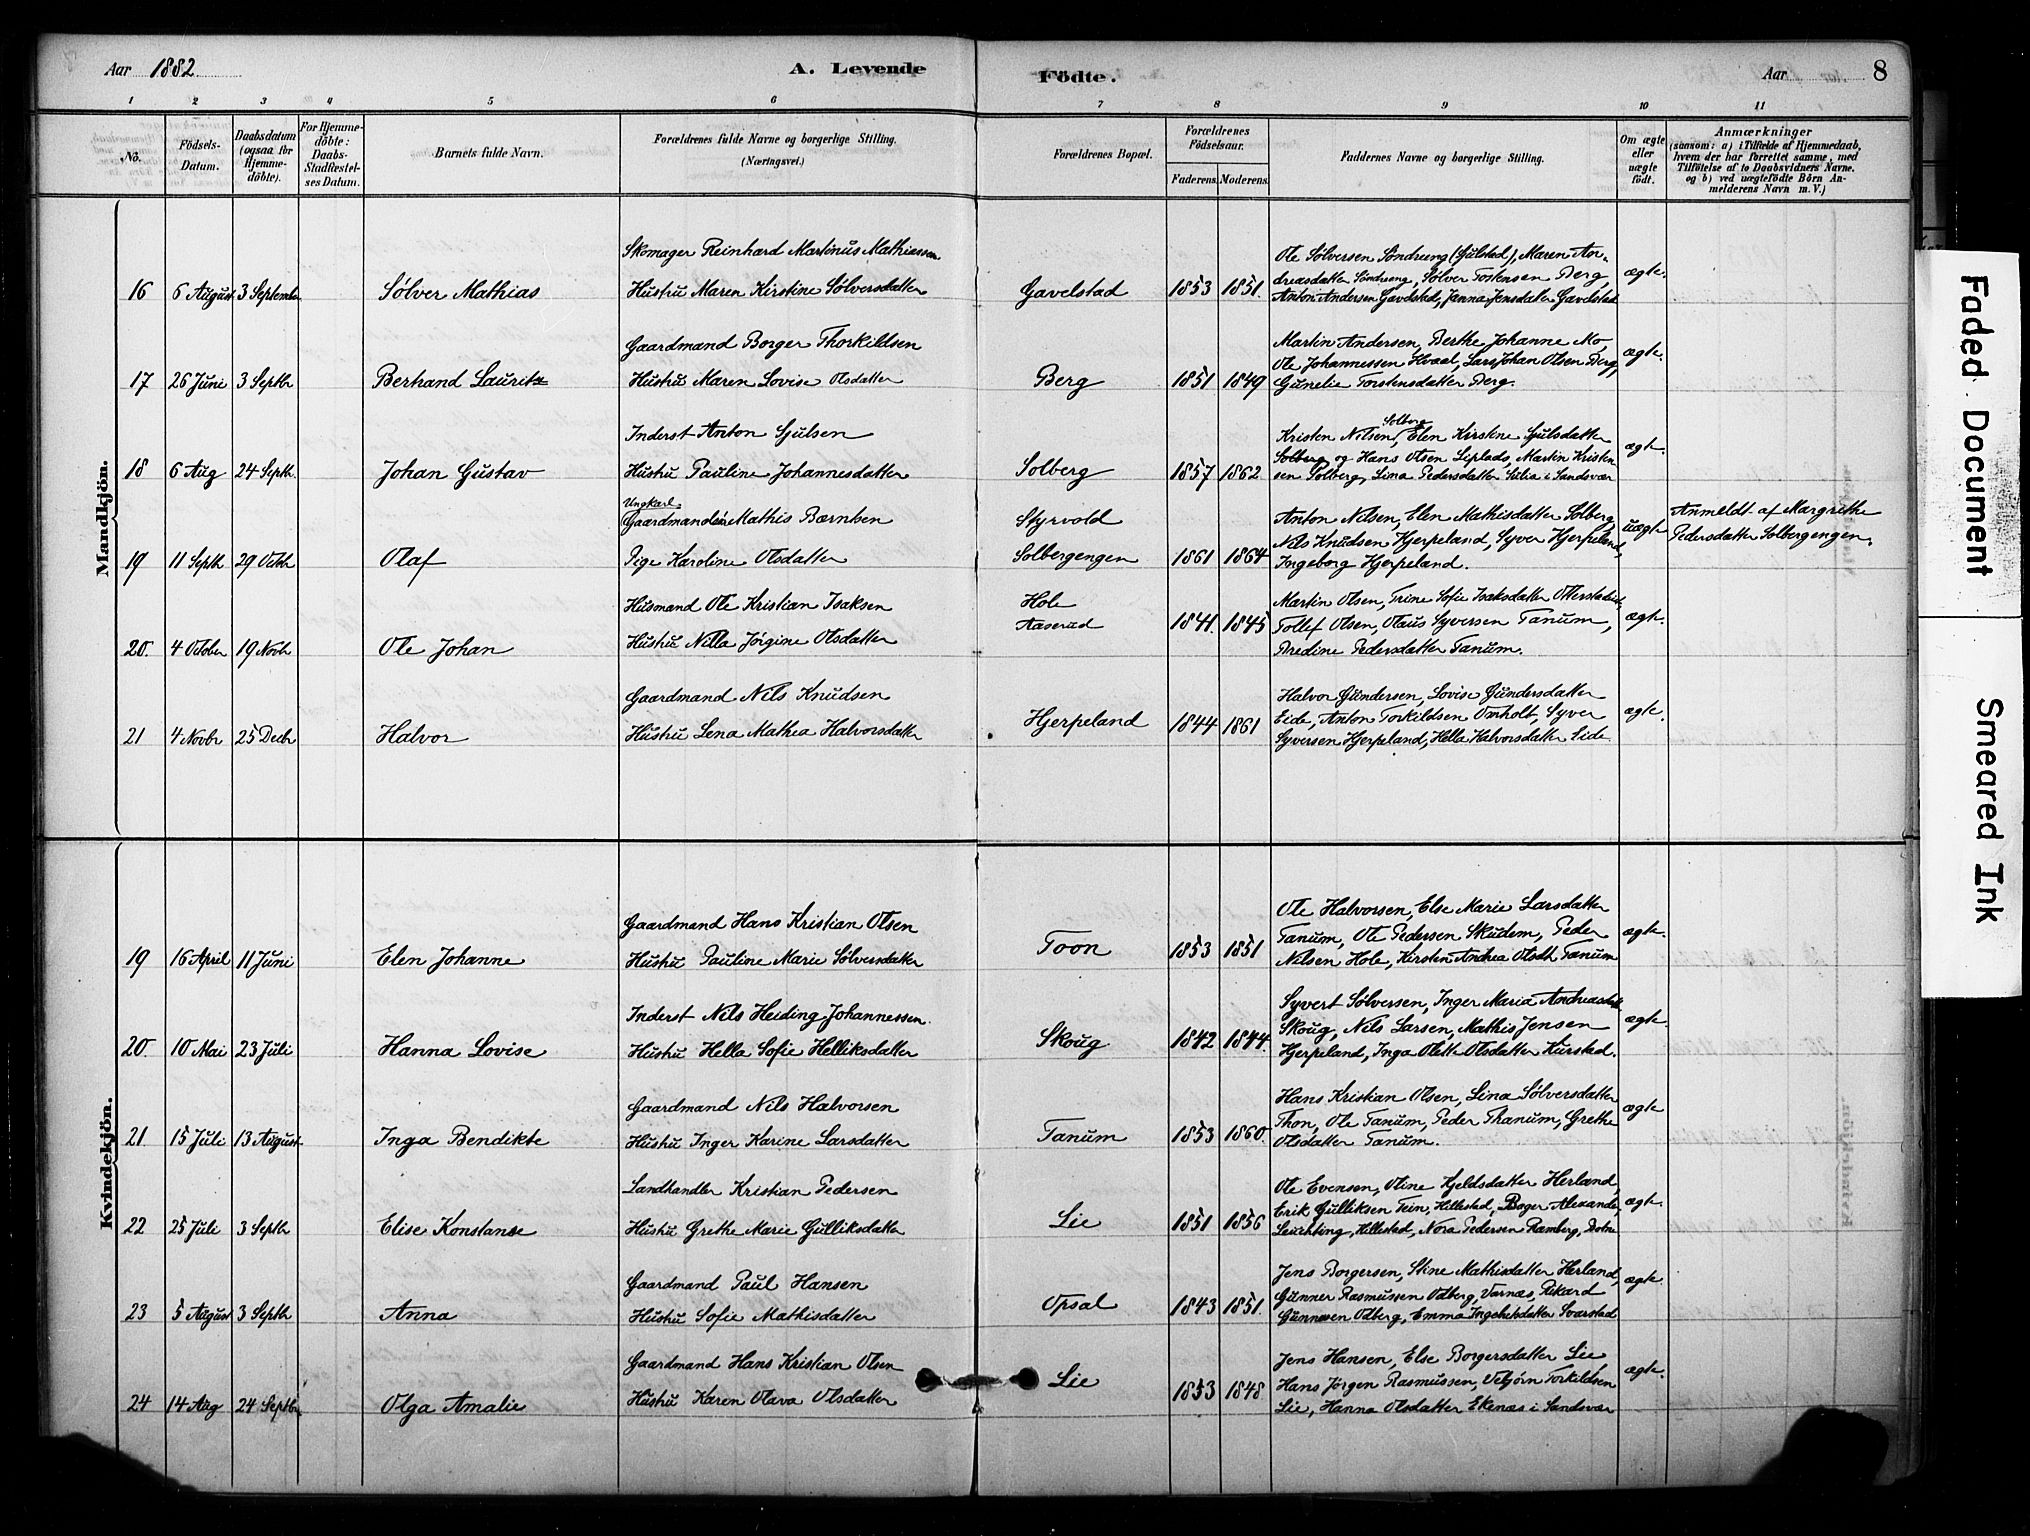 Aar 1882
A. Levende
Födte.
Aar
8
1 2 3 4 5 6 7 8 9 10 11
No.
Födsels-
Datum.
Daabsdatum
(ogsaa for
Hjemme-
döbte).
For Hjemme-
döbte:
Daabs-
Stadfæstel-
ses Datum.
Barnets fulde Navn.
Forældrenes fulde Navne og borgerlige Stilling.
(Næringsvei.)
Forældrenes Bopæl.
Forældrenes
Födselsaar.
Faderens. Moderens.
Faddernes Navne og borgerlige Stilling.
Om ægte
eller
uægte
födt.
Anmærkninger
(saasom: a) i Tilfælde af Hjemmedaab,
hvem der har forrettet samme, med
Tilföielse af to Daabsvidners Navne.
og b) ved uægtefödte Börn An-
melderens Navn m. V.)
Mandkjön.
Skomager Reinhard Martinus Mathiassen
16 6 August 3 September Sølver Mathias Hustru Maren Kirstine Sølversdatter Gavelstad 1853 1851.
Ole Sølversen Søndreeng (Gulstad), Maren An-
dreasdatter Søndreeng, Sølver Tostensen Berg,
Anton Andersen Gavelstad, Jenna Jensdatter Gavelstad
ægte.
Gaardmand Borger Thorkildsen
17 26 Juni 3 Septbr Berhand Lauritz Hustru Maren Lovise Olsdatter Berg 1851 1849
Martin Andersen, Berthe Johanne Mo,
Ole Johannessen Hvaal, Lars Johan Olsen Berg,
Gunelie Torstensdatter Berg.
ægte.
Inderst Anton Gjulsen
18 6 Aug 24 Septbr. Johan Gustav Hustru Pauline Johannesdatter Solberg 1857 1862
Solberg
Kristen Nilsen, Elen Kirstine Gjulsdatter
Solberg og Hans Olsen Liplads, Martin Kristen
sen Solberg, Lina Pedersdatter Lilia i Sandsvær
ægte.
Ungkarl.
Gaardmandsøn Mathis Bærntsen Styrvold
19 11 Septb 29 Octbr Olaf Pige Karoline Olsdatter Solbergengen 1861 1864
Anton Nilsen, Elen Mathisdatter Solberg,
Nils Knudsen Hjerpeland, Syver Hjerpeland,
Ingeborg Hjerpeland.
uægte
Anmeldt af Margrethe
Pedersdatter Solbergengen.
Husmand Ole Kristian Isaksen Hole
20. 4 October 19 Novbr Ole Johan Hustru Nilla Jørgine Olsdatter Aaserud 1841. 1845
Martin Olsen, Trine Sofie Isaksdatter Otterstadeie,
Tollef Olsen, Olaus Syversen Tanum,
Bredine Pedersdatter Tanum.
ægte.
Gaardmand Nils Knudsen
21 4 Novbr 25 Decbr Halvor Hustru Lena Mathea Halvorsdatter Hjerpeland 1844 1861
Halvor Gundersen, Lovise Gundersdatter
Eide, Anton Torkildsen Omholt, Syver
Syversen Hjerpeland, Hella Halvorsdatter Eide
ægte.
Kvindekjön.
Gaardmand Hans Kristian Olsen
19 16 April 11 Juni Elen Johanne Hustru Pauline Marie Sølversdatter Toon 1853 1851
Ole Halvorsen, Else Marie Larsdatter
Tanum, Ole Pedersen Skudem, Peder
Nilsen Hole, Kirsten Andrea Olsdt Tanum
ægte.
Inderst Nils Heiding Johannessen.
20. 10 Mai 23 Juli Hanna Lovise Hustru Hella Sofie Helliksdatter Skoug 1842 1844.
Syvert Sølversen, Inger Maria Andreasdatt
Skoug, Nils Larsen, Mathis Jensen
Hjerpeland, Inga Olette Olsdatter Kurstad.
ægte.
Gaardmand Nils Halvorsen
21 15 Juli 13 August Inga Bendikte Hustru Inger Karine Larsdatter Tanum 1853 1860.
Hans Kristian Olsen, Lina Sølversdatter
Thon, Ole Tanum, Peder Thanum, Grethe
Olsdatter Tanum.
ægte
Landhandler Kristian Pedersen
22 25 Juli 3 Septbr Elise Konstanse Hustru Grethe Marie Gulliksdatter Lie 1851 1856
Ole Evensen, Otine Kjeldsdatter Herland,
Erik Gulliksen Tein, Hillestad, Boger Alexander
Leuchting, Hillestad, Nora Pedersen Ramberg, Botne
ægte.
Gaardmand Paul Hansen
23 5 August 3 Septbr Anna Hustru Sofie Mathisdatter Opsal 1843 1851.
Jens Borgersen, Stine Mathisdatter Herland,
Gunner Rasmussen Odberg, Varnæs, Rikard
Gunnesen Odberg, Emma Ingebretsdatter Svarstad
ægte.
Gaardmand Hans Kristian Olsen
24 14 Aug 24 Septbr Olga Amalie Hustru Karen Olava Olsdatter Lie 1853 1848
Jens Hansen, Else Borgersdatter Lie,
Hans Jørgen Rasmussen, Vebjørn Torkildsen
Lie, Hanna Olsdatter Ekenæs i Sandsvær
ægte.
Faded Document
Smeared Ink